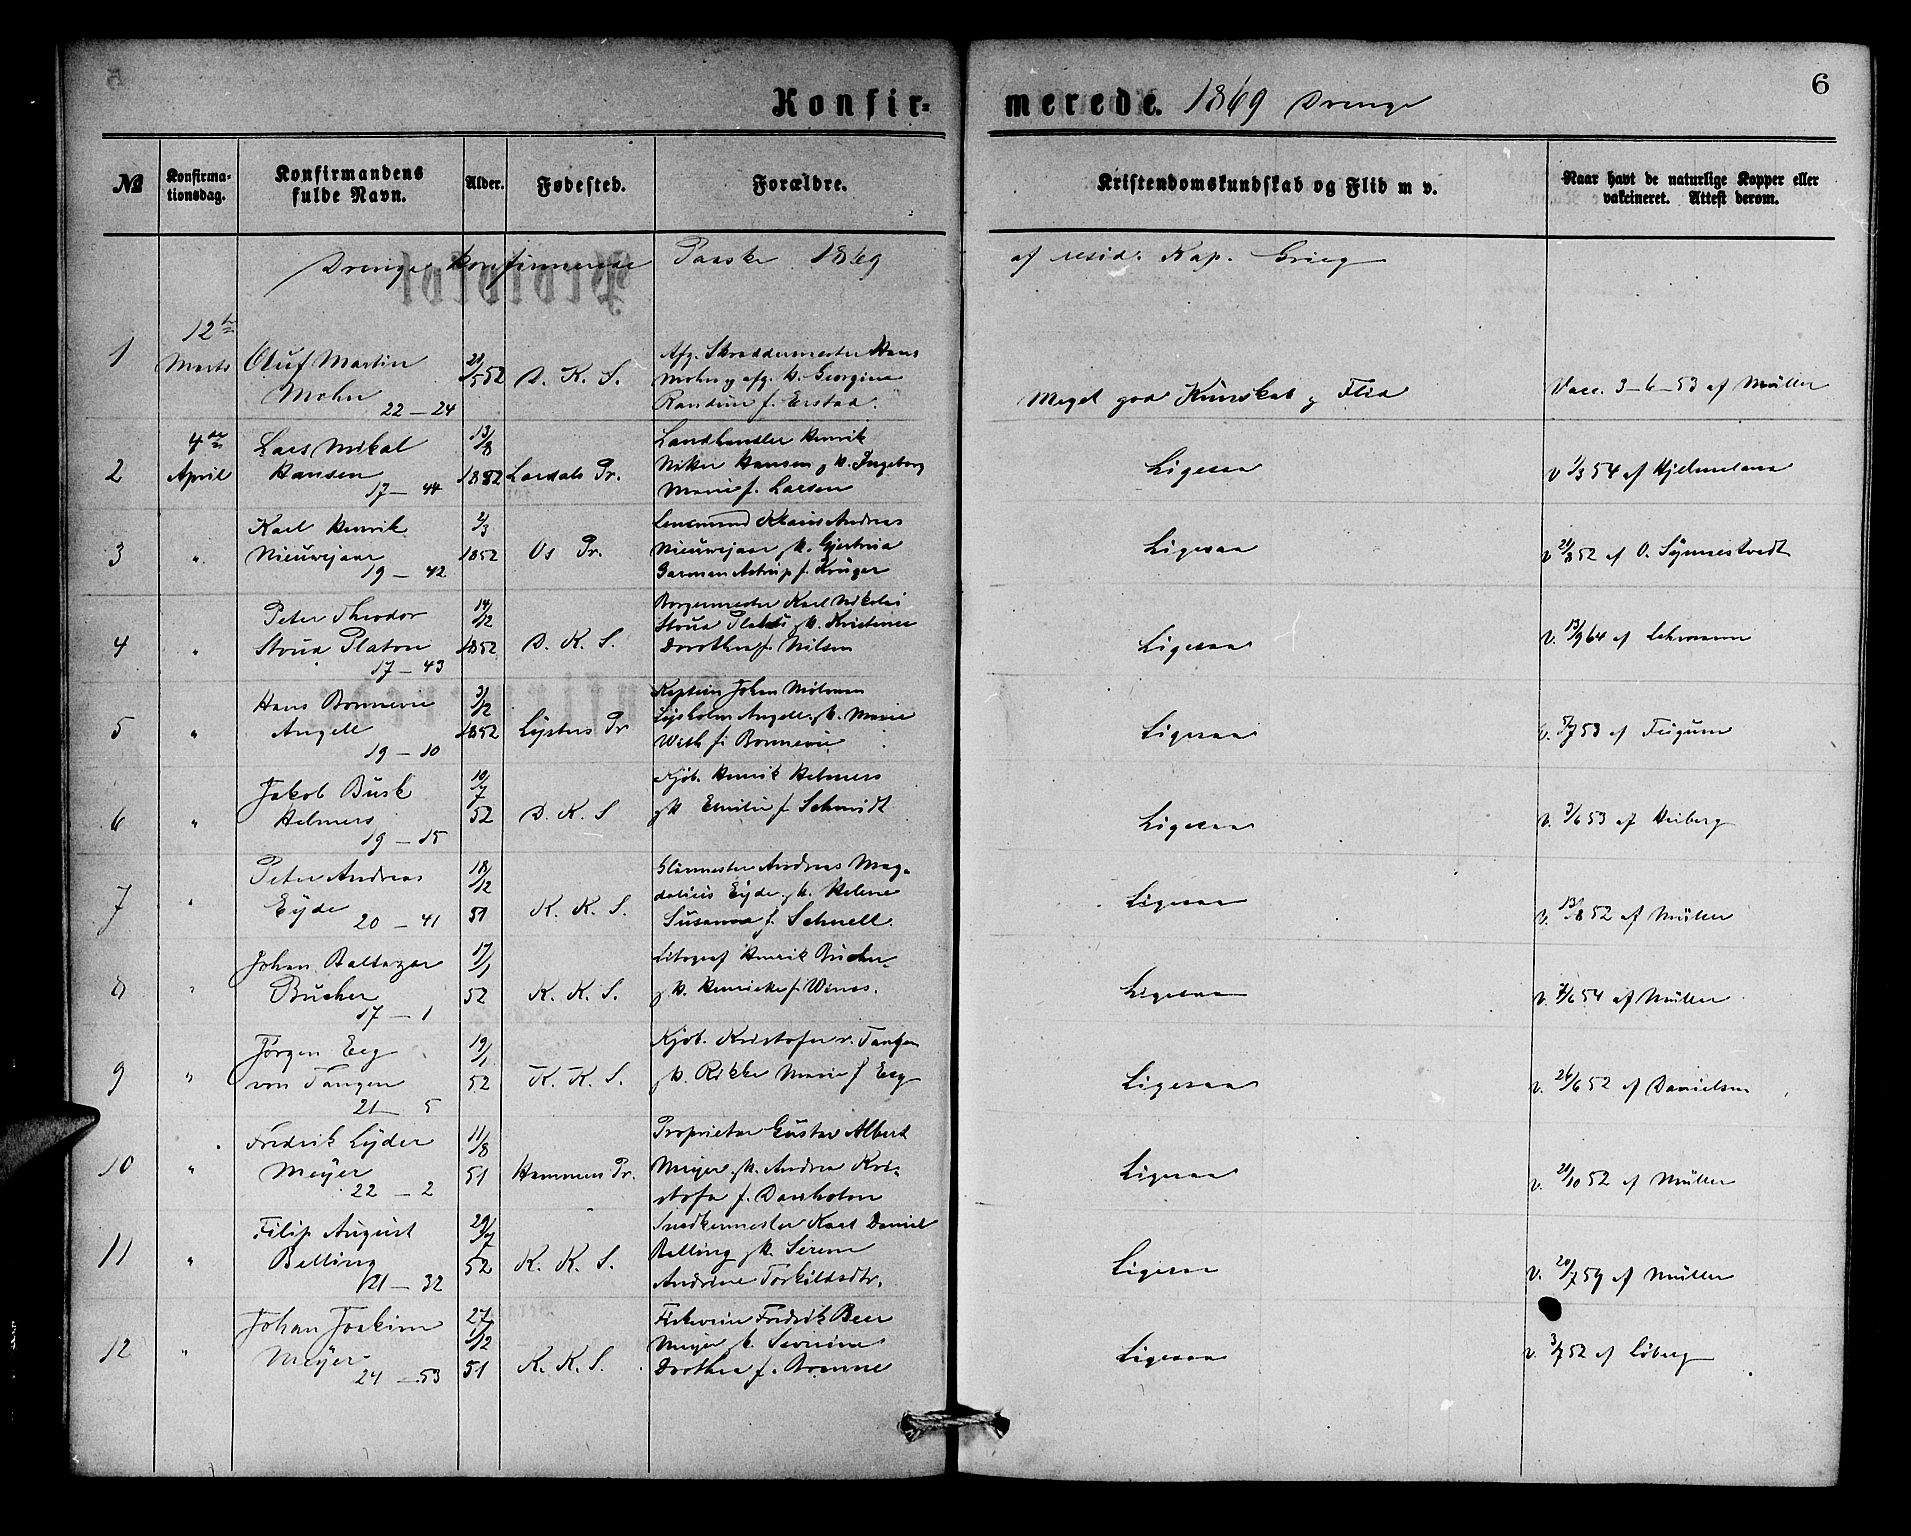 6
Konfir- merede. 1869 Drenge
№ Konfirmationsdag. Konfirmandens fulde Navn. Alder. Fødested. Forældre. Kristendomskundskab og Flid m v. Naar havt de naturlige Kopper eller vakcineret. Attest derom.
Drenge konfirmerede Paaske 1869 af resid. Kap. Grieg
12te
1 Marts Oluf Martin 21/5 52 D. K. S. Afg. Skræddermester Hans
Mohn Mohn og afg. H. Georgine
22 — 24 Randine f. Erstad.
Meget god Kunskab og Flid Vacc. 3-6-53 af Müller
4de Lars Mikal 13/8 Landhandler Henrik
2 April Hansen 1852 Lærdals Pr. Hansen og H. Ingeborg
17 — 44 Marie f. Larsen
Ligesaa v 1/3 54 af Hjelmeland
Karl Henrik 2/3 Lensmand Klaus Andreas
3 " Nieuwejaar 1852 Os Pr. Nieuwejaar og H. Gjertrud
19 — 42 Garman Astrup f. Krüger
Ligesaa v 21/8 52 af O. Synnestvedt
Peter Theodor 14/12 Borgermester Karl Nikolai
4 " Stoud Platou 1852 D. K. S. Stoud Platou og H. Kristine
17 — 43 Dorothea f. Nilsen
Ligesaa v. 13/9 64 af Lehmann
Hans Bonnevie 31/12 Kaptein Johan
5 " Angell 1852 Lysters Pr Lysholm Angell og H. Marie
19 — 10 With f. Bonnevie
Ligesaa v. 5/7 53 af Fugum
Jakob Busk 10/7 Kjøb. Henrik Helmers
6 " Helmers 52 D. K. S og H. Emilie f. Schmidt
19 — 15
Ligesaa v. 3/6 53 af Heiberg
Peter Andreas 18/12 Glarmester Andreas Mag-
7 " Eyde 51 K. K. S. dalius Eyde og H. Helene
20 — 41 Susanna f. Schnell.
Ligesaa v. 13/8 52 af Müller
Johan Baltazar 17/1 Litograf Henrik Bucher
8 " Bucher 52 K. K. S. og H. Henrikke f.
17 — 1
Ligesaa v. 7/6 54 af Müller
Jørgen Eeg 19/1 Kjøb. Kristofer v. Tangen
9 " von Tangen 52 K. K. S. og H. Rikke Marie f Eeg
21 — 5
Ligesaa v. 26/6 52 af Danielsen
Fredrik Lyder 11/8 Proprietær Gustav Albert
10 " Meyer 51 Hammers Pr. Meyer og H. Andrea Kri-
22 — 2 stofa f.
Ligesaa v. 21/10 52 af Müller
Filip August 29/7 Snedkermester Karl Daniel
11 " Belling 52 K. K. S. Belling og H. Serene
21 — 32 Andrine Torkildsdtr.
Ligesaa v. 20/7 54 af Müller
Johan Joakim 27/12 Fredrik Beer
12 " Meyer 51 K. K. S. Meyer og H. Severine
24 — 53 Dorthea f.
Ligesaa v. 3/7 52 af Løberg